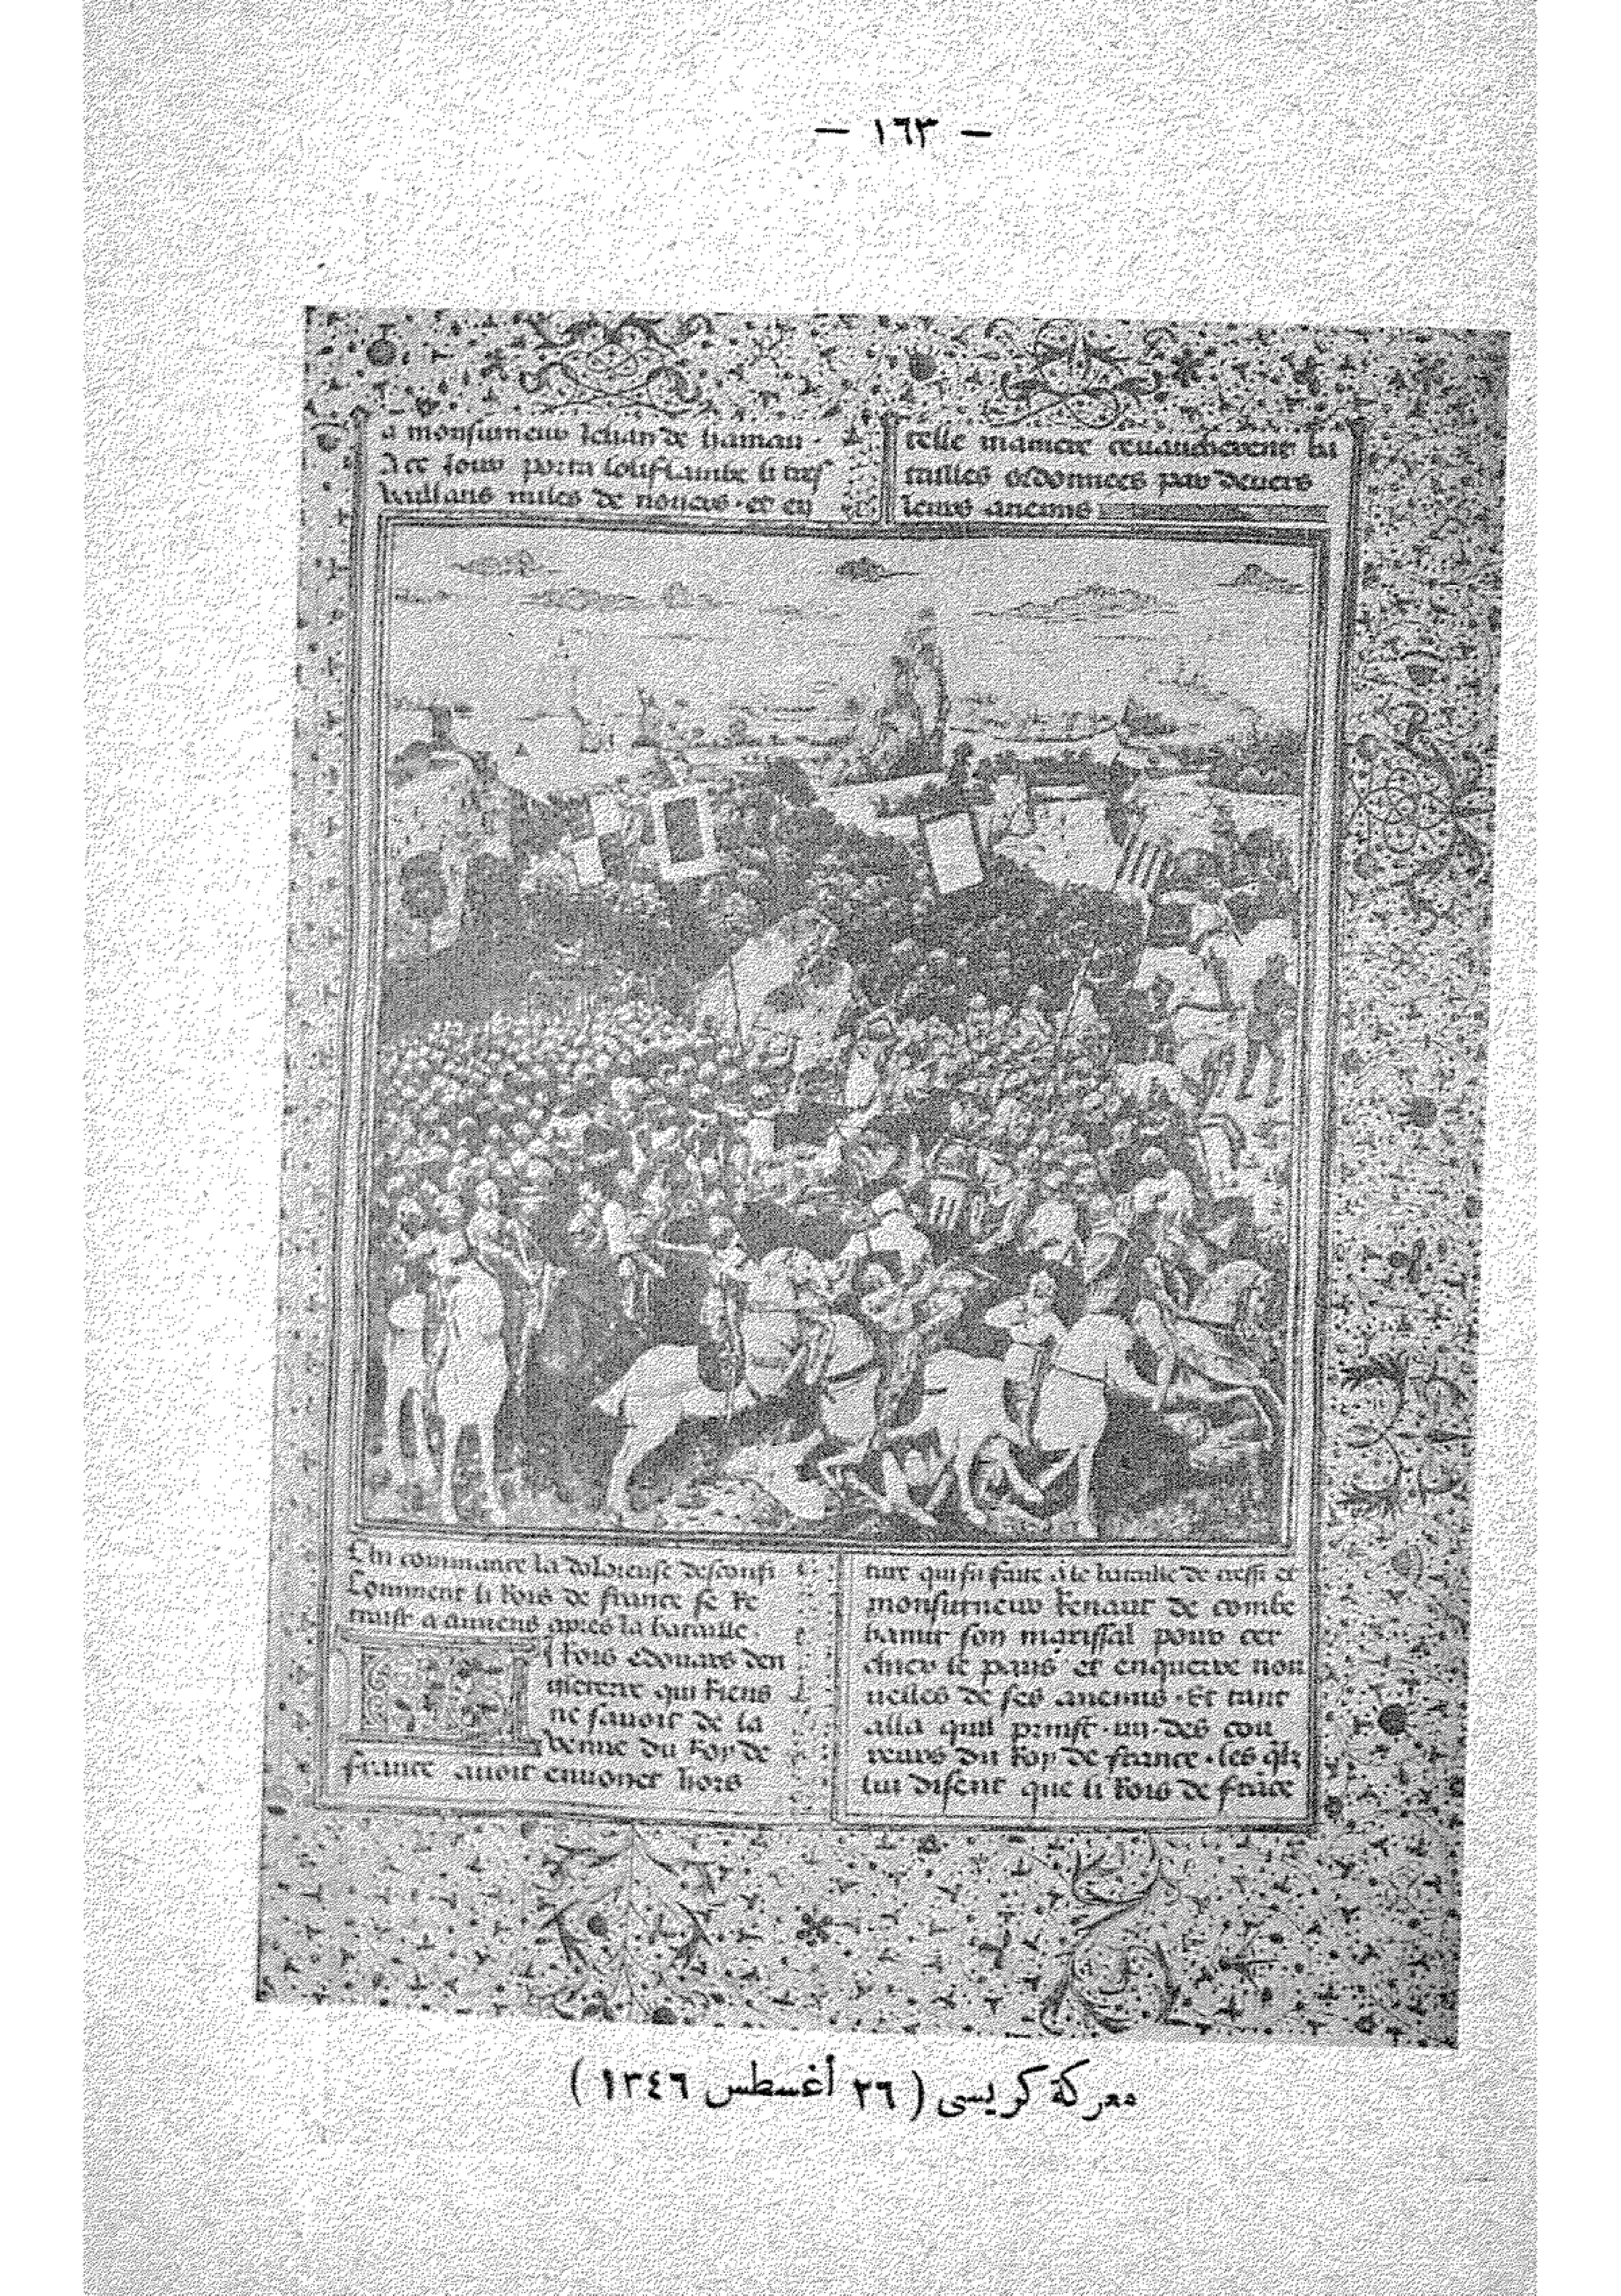 — ١٦٣ —
a monsurneur Jehan de hainau
telle maniere
tailles ordonnees par deuers
leurs anemis
Chi commance la doloreuse desconfi
Comment li Rois de france se Re
traist a amiens apres la bataille.
rois edouars den
gleterre qui riens
ne sauoit de la
venue du Roy de
france auoit enuoiet hors
ture qui fu faite a le bataille de cressi et
monsurneur Renaut de
son marissal pour cer
chier le pays et enquerre nou
uelles de ses anemis. Et tant
alla quil prinst .un. des cou
reurs du Roy de france. les qlz
lui disent que li Rois de france
معركة كريسى ( ٢٦ أغسطس ١٣٤٦ )